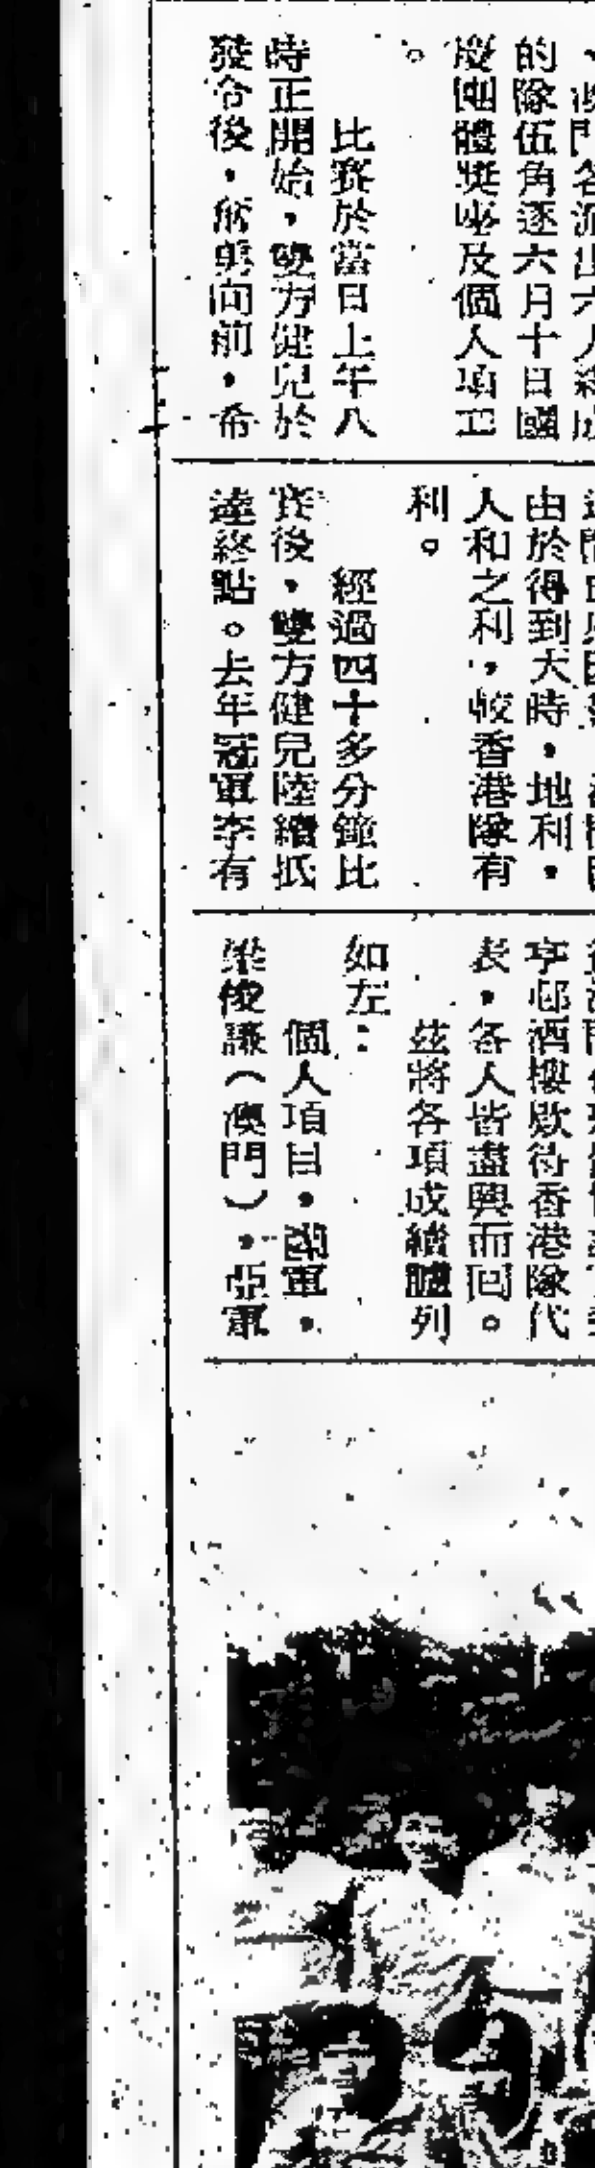 澳門各派出六人組成
的隊伍角逐六月十日國
慶團體獎座及個人項目
。
比賽於當日上午八
時正開始，雙方健兒於
發令後，奮勇向前，希
由於得到天時，地利，
人和之利，較香港隊有
利。
經過四十多分鐘比
賽後，雙方健兒陸續抵
達終點。去年冠軍李有
亨邨酒樓款待香港隊代
表，各人皆盡興而回。
茲將各項成績臚列
如左：
個人項目，冠軍，
梁俊謙（澳門），亞軍